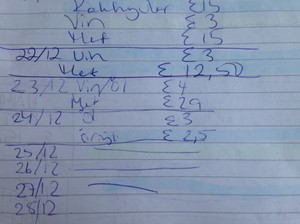 £15
Vin £3
Mat £15
22/12 Vin £3
Mat £12,50
23/12 Vin/öl £4
Mat £29
24/12 öl £3
£2,5
25/12
26/12
27/12
28/12